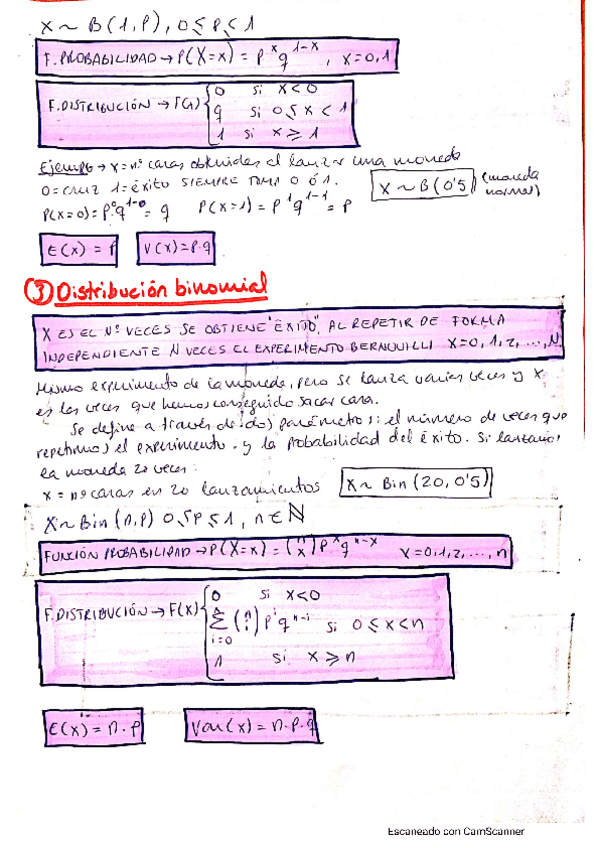 X ~ B(1,P), 0≤P≤1
F. PROBABILIDAD → P(X=x) = p^x q^{1-x}, x=0,1
F. DISTRIBUCIÓN → F(x) { 0 si x<0
q si 0≤x<1
1 si x≥1
Ejemplo → x = nº caras obtenidas al lanzar una moneda
0=CRUZ 1=éxito SIEMPRE TOMA 0 Ó 1. X~B(0'5) (moneda
normal)
P(x=0) = p^0 q^{1-0} = q P(x=1) = p^1 q^{1-1} = p
E(x) = p V(x)=p·q
③ Distribución binomial
X ES EL Nº VECES SE OBTIENE "ÉXITO", AL REPETIR DE FORMA
INDEPENDIENTE N VECES EL EXPERIMENTO BERNOUILLI X=0,1,2,...,N.
Mismo experimento de la moneda, pero se lanza varias veces y x
es las veces que hemos conseguido sacar cara.
Se define a través de (dos) parámetros: el número de veces que
repetimos el experimento. y la probabilidad del éxito. Si lanzamos
la moneda 20 veces:
x = nº caras en 20 lanzamientos X~Bin(20,0'5)
X~Bin(n,p) 0≤P≤1, n∈ℕ
FUNCIÓN PROBABILIDAD → P(X=x) = (n x) p^x q^{n-x} x=0,1,2,...,n
F. DISTRIBUCIÓN → F(x) { 0 si x<0
Σ i=0 (n i) p^i q^{n-i} si 0≤x<n
1 si x≥n
E(x) = n·p Var(x) = n·p·q
Escaneado con CamScanner